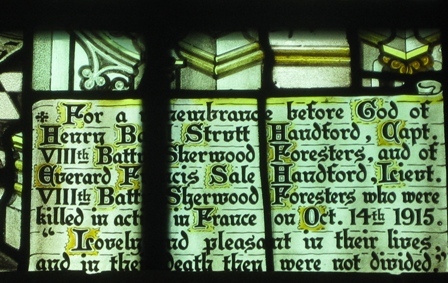 ✠ For a remembrance before God of
Henry Ba l Strutt Handford, Capt.
VIIIth Battn Sherwood Foresters, and of
Everard Francis Sale Handford, Lieut.
VIIIth Battn Sherwood Foresters who were
killed in action in France on Oct. 14th 1915.
"Lovely and pleasant in their lives,
and in their death they were not divided."